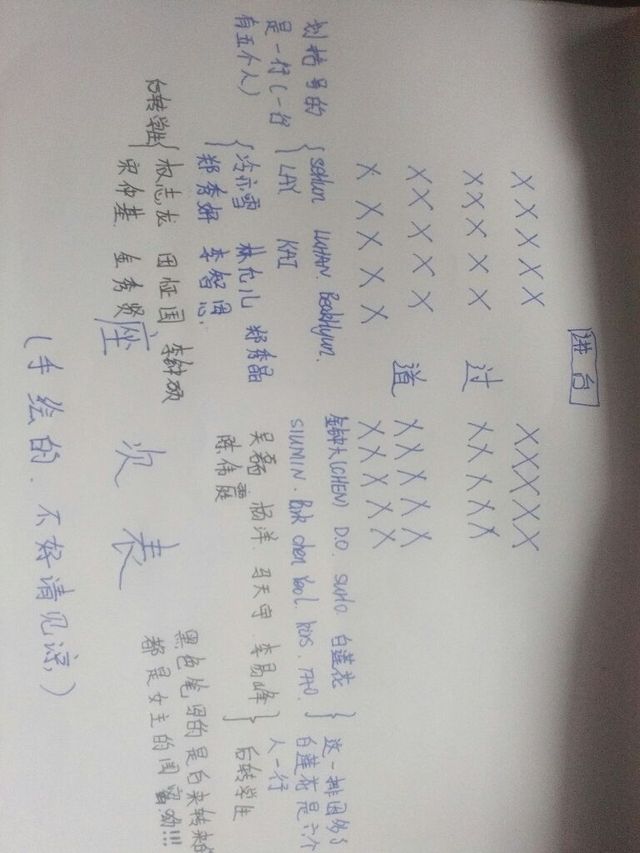 讲台
X X X X X X X X X X
X X X X X 过 X X X X X
X X X X X 道 X X X X X
X X X X X X X X X X
划括号的
是一行(一行
有五个人)
{ sehun LUHAN. Beakhyun.
LAY KAI
{ 冷亦雪 林允儿 郑秀晶
郑秀妍 李智恩.
后转学生 { 权志龙 田怔国 李钟硕
宋仲基. 金秀贤
金钟大(CHEN) D.O. suho 白莲花 }
SIUMIN. Park chen Yeol. kris. TAO.
这一排因多了
白莲花是六个
人一行
吴磊 杨洋. 马天宇. 李易峰 } 后转学生
陈伟霆
黑色笔写的是后来转来的
都是女主的闺蜜呦!!!
座次表
(手绘的. 不好请见谅,)